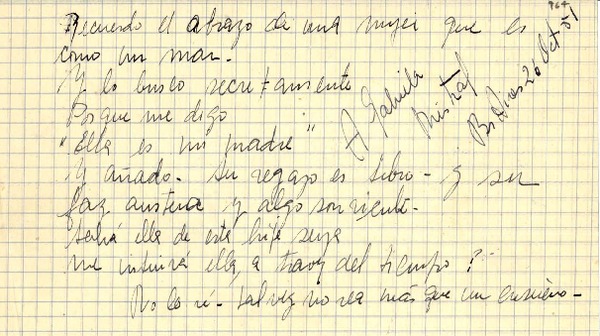 Recuerdo el abrazo de una mujer que es
como un mar.
Y lo busco secretamente
Porque me digo
"Ella es mi madre"
Y añado. Su regazo es tibio - y su
faz austera y algo sonriente.
Sabrá ella de esta hija suya
me intuirá ella, a través del tiempo?
No lo sé - tal vez no sea más que un ensueño -
A Gabriela
Mistral
Bs Aires 26 Oct 51
964